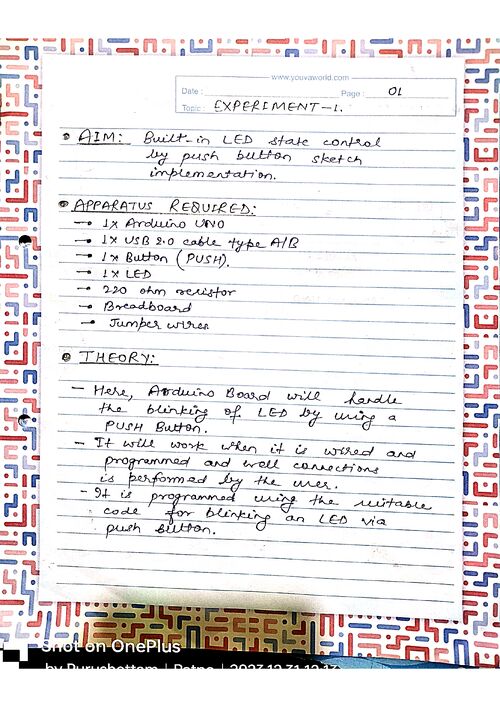 www.youvaworld.com
Date : Page : 01
Topic : EXPERIMENT-1.
AIM: Built-in LED state control
by push button sketch
implementation.
APPARATUS REQUIRED:
→ 1x Arduino UNO
→ 1x USB 2.0 cable type A/B
→ 1x Button (PUSH).
→ 1x LED
→ 220 ohm resistor
→ Breadboard
→ Jumper wires
THEORY:
- Here, Arduino Board will handle
the blinking of LED by using a
PUSH Button.
- It will work when it is wired and
programmed and well connections
is performed by the user.
- It is programmed using the suitable
code for blinking an LED via
push button.
Shot on OnePlus
by Purushottam | Patna | 2023.12.31 12:13